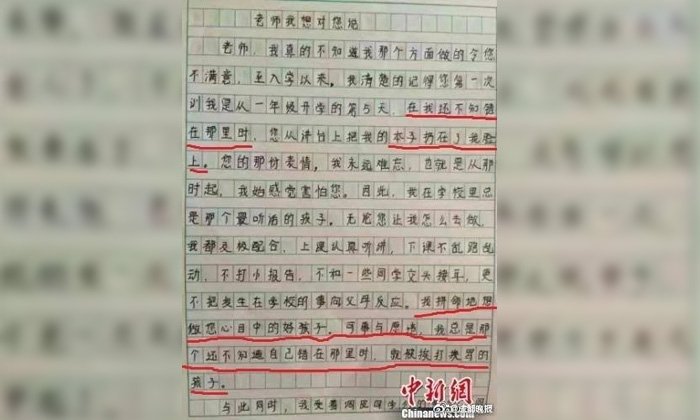 老师我想对您说
老师，我真的不知道我那个方面做的令您
不满意，至入学以来。我清楚的记得您第一次
训我是从一年级开学的第5天，在我还不知错
在那里时，您从讲台上把我的本子扔在了我脸
上。您的那份表情，我永远难忘，也就是从那
时起，我始感觉害怕您。因此，我在学校里总
是那个最听话的孩子。无论您让我怎么去做，
我都及极配合，上课认真听讲，下课不乱跑乱
动，不打小报告，不和一些同学交头接耳，更
不把发生在学校的事向父母反应。我拼命地想
做您心目中的好孩子。可事与愿违，我总是那
个还不知道自己错在那里时，就被挨打挨骂的
孩子。
与此同时，我受着周围同学
中新網
Chinanews.com